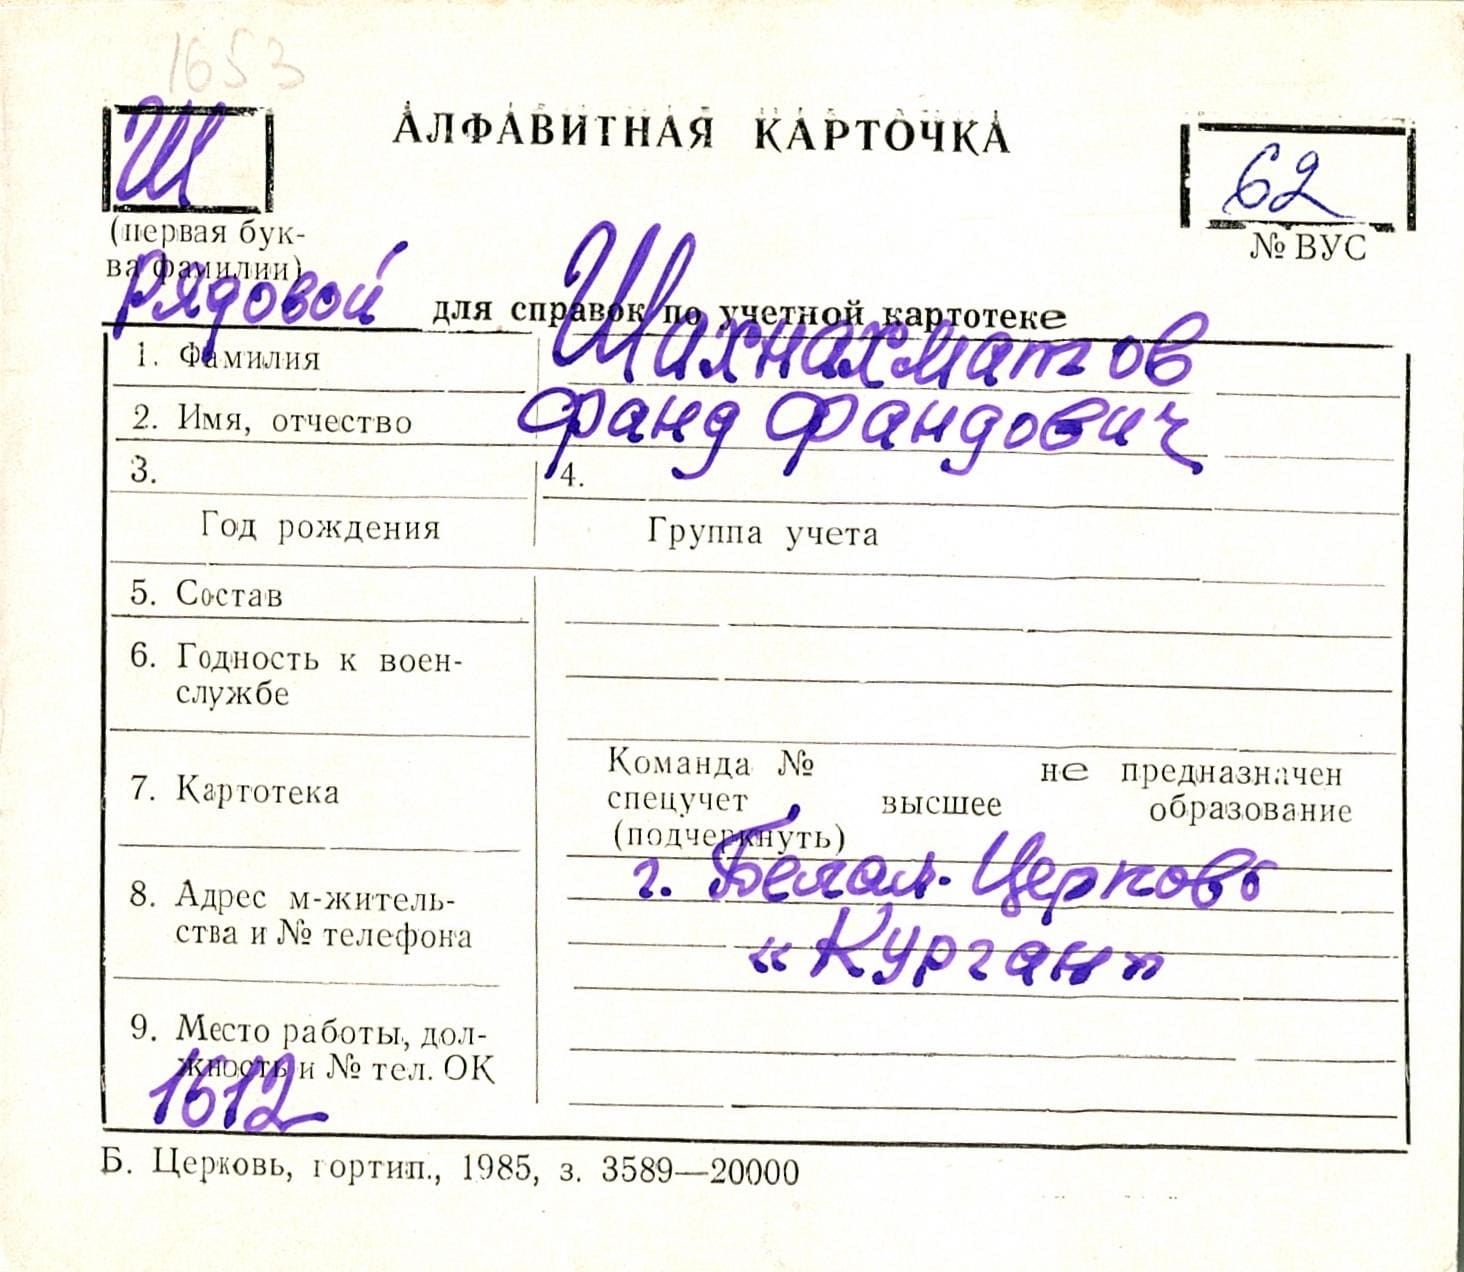 1653
Ш
АЛФАВИТНАЯ КАРТОЧКА
62
(первая бук-
ва фамилии)
№ ВУС
Рядовой
для справок по учетной картотеке
1. Фамилия Шахнахматов
2. Имя, отчество Фанд Фандович
3. 4.
Год рождения Группа учета
5. Состав
6. Годность к воен-
службе
7. Картотека
Команда № не предназначен
спецучет высшее образование
(подчеркнуть)
8. Адрес м-житель-
ства и № телефона
г. Белая-Церковь
«Курган»
9. Место работы, дол-
жность и № тел. ОК
1612
Б. Церковь, гортип., 1985, з. 3589—20000